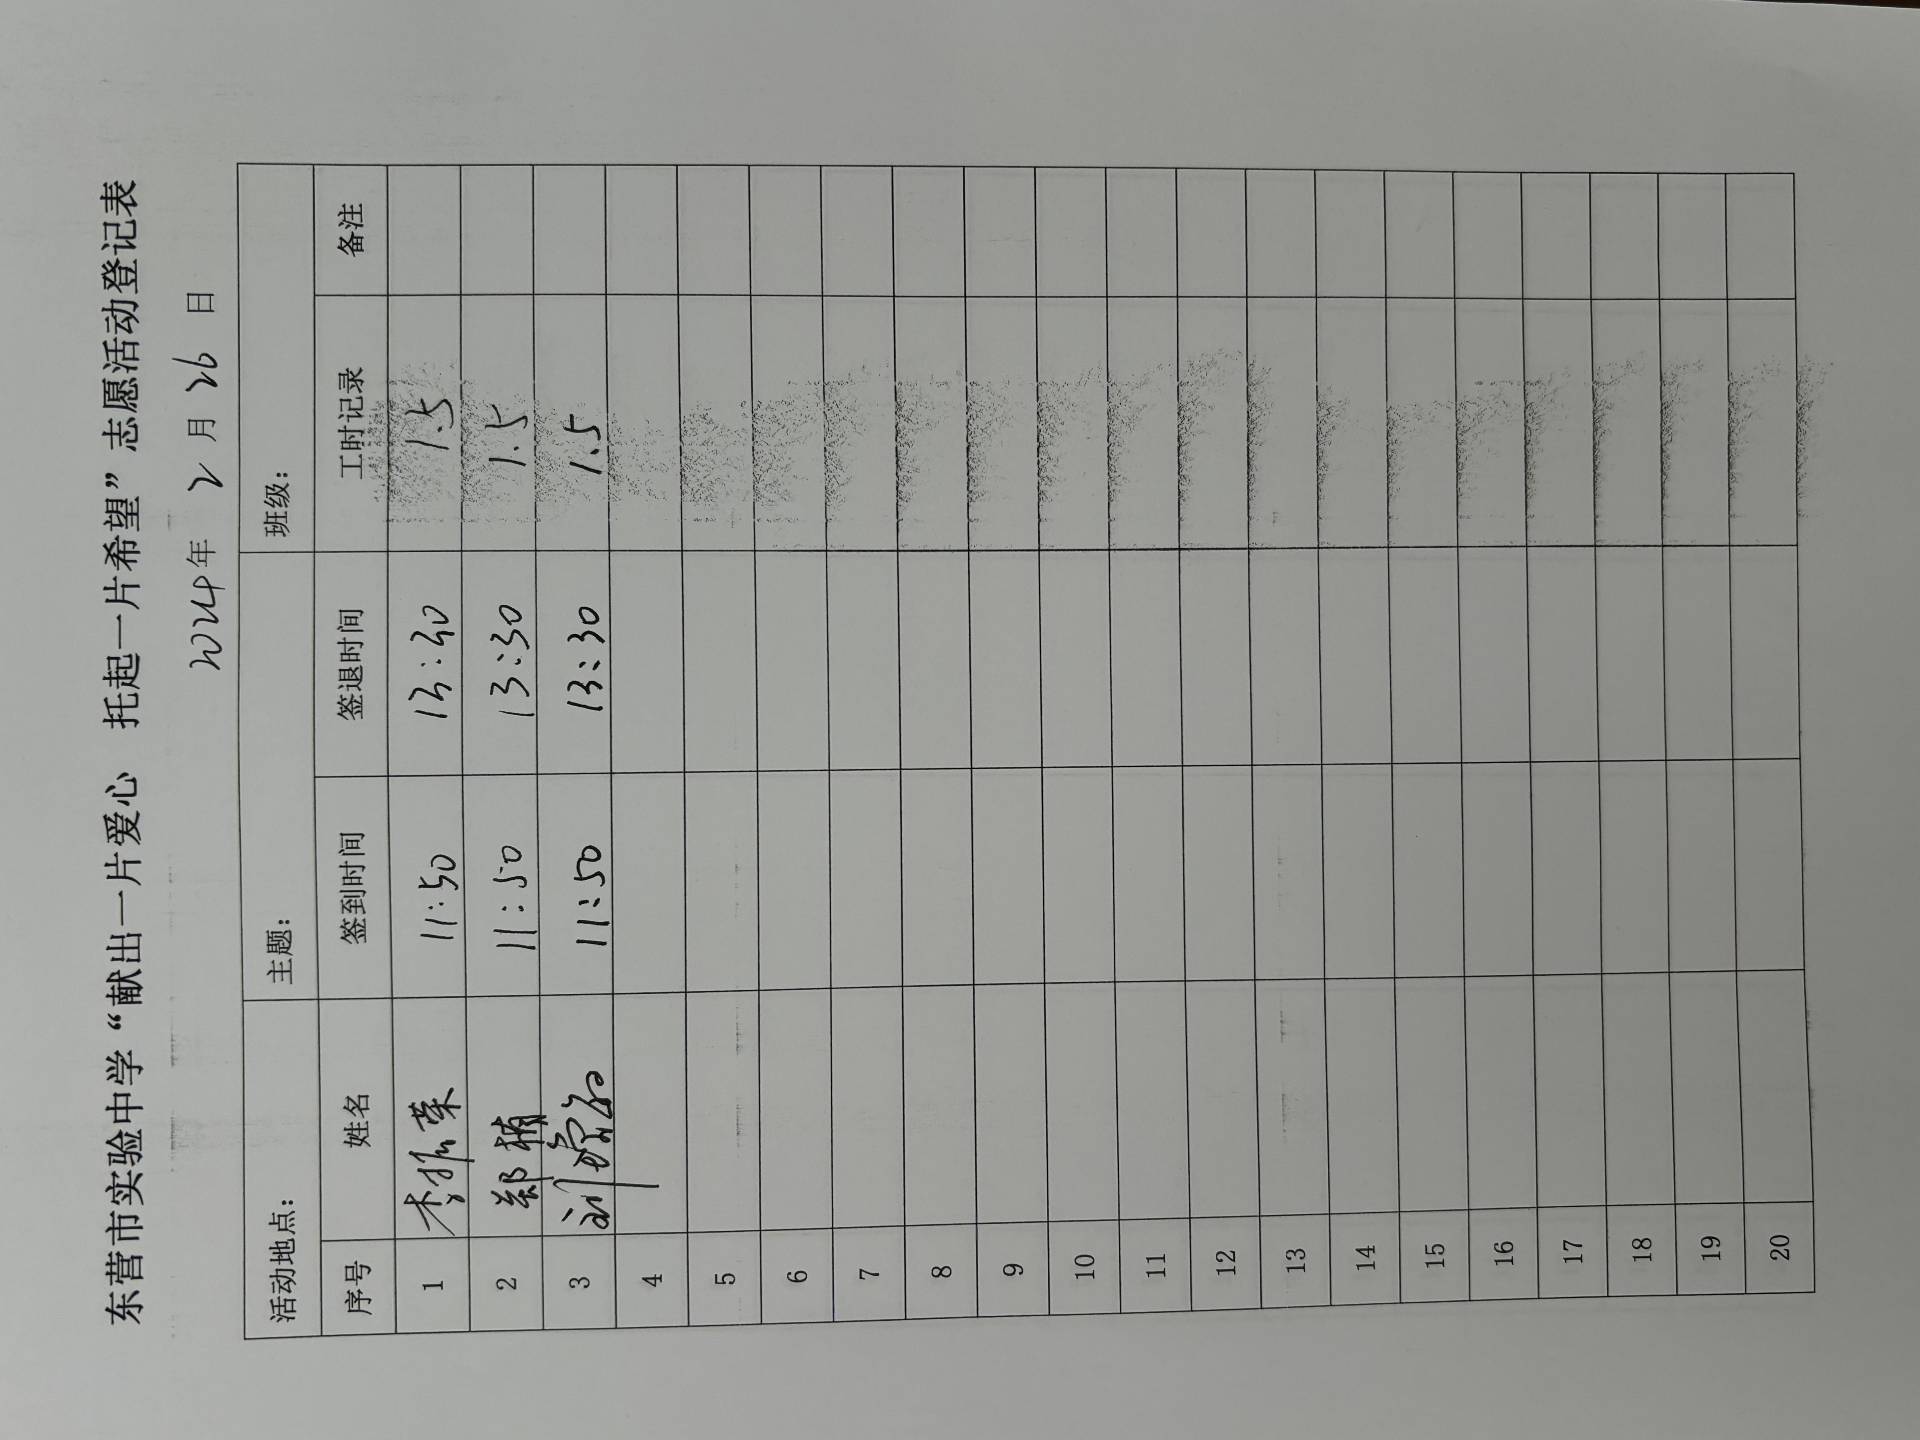 东营市实验中学“献出一片爱心 托起一片希望”志愿活动登记表
2024年 2 月 26 日
活动地点： 主题： 班级：
序号 姓名 签到时间 签退时间 工时记录 备注
1 李振荣 11:50 13:30 1.5
2 郑楠 11:50 13:30 1.5
3 刘 11:50 13:30 1.5
4
5
6
7
8
9
10
11
12
13
14
15
16
17
18
19
20